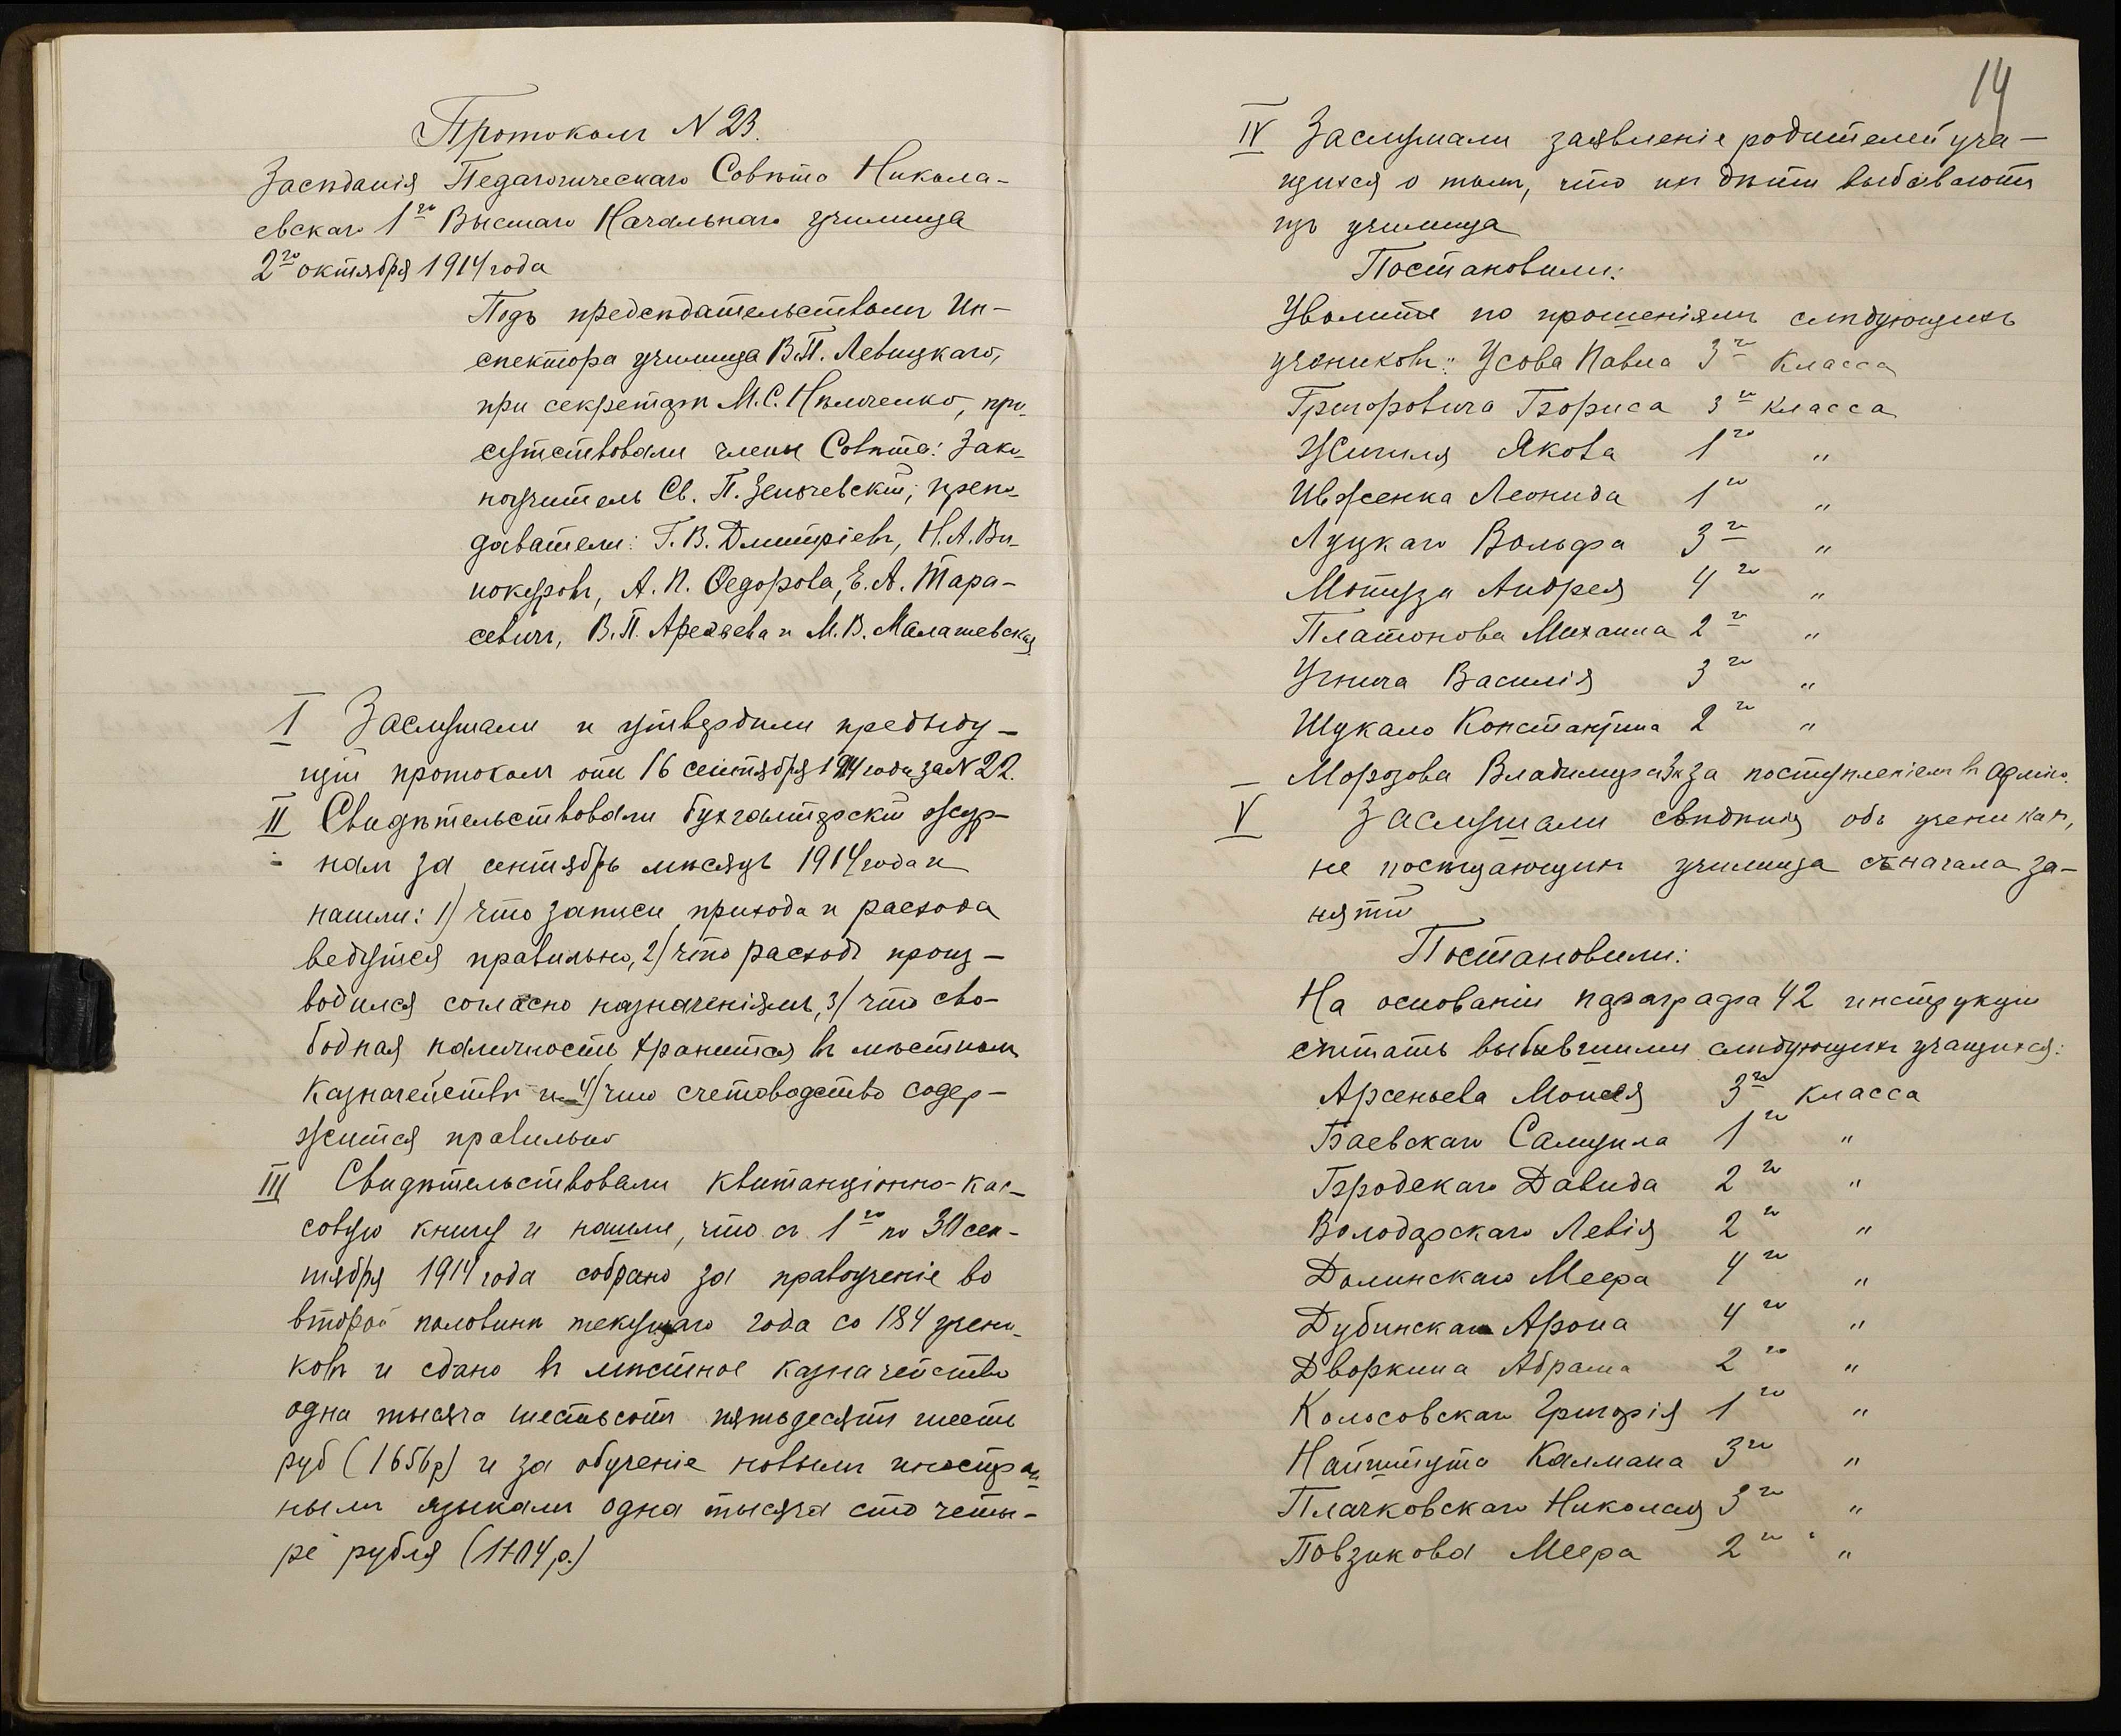 Протоколъ N 23.
Засѣданія Педагогическаго Совѣта Никола-
евскаго 1го Высшаго Начальнаго училища
2го октября 1914 года
Подъ предсѣдательствомъ Ин-
спектора училища В.П. Левицкаго,
при секретарѣ М.С. Нѣмченко, при-
сутствовали члены Совѣта: Зако-
ноучитель Св. П. Зенчевскій; препо-
даватели: Г.В. Дмитріевъ, Н.А. Ви-
нокуровъ, А.П. Ѳедорова, Е.А. Тара-
севичъ, В.П. Арефьева и М.В. Малашевская
I Заслушали и утвердили предыду-
щій протоколъ отъ 16 сентября 1914 года за N 22.
II Свидѣтельствовали бухгалтерскій жур-
налъ за сентябрь мѣсяцъ 1914 года и
нашли: 1) что записи прихода и расхода
ведутся правильно, 2) что расходъ произ-
водился согласно назначеніямъ, 3) что сво-
бодная наличность хранится въ мѣстномъ
Казначействѣ и 4) что счетоводство содер-
жится правильно
III Свидѣтельствовали квитанціонно-кас-
совую книгу и нашли, что съ 1го по 30 сен-
тября 1914 года собрано за правоученіе во
второй половинѣ текущаго года со 184 учени-
ковъ и сдано въ мѣстное казначейство
одна тысяча шестьсотъ пятьдесятъ шесть
руб (1656р) и за обученіе новымъ иностран-
нымъ языкамъ одна тысяча сто четы-
ре рубля (1104 р.)
14
IV Заслушали заявленіе родителей уча-
щихся о томъ, что ихъ дѣти выбываютъ
изъ училища
Постановили:
Уволить по прошеніямъ слѣдующихъ
учениковъ: Усова Павла 3го класса
Григоровича Бориса 3го класса
Жигиля Якова 1го "
Ивженка Леонида 1го "
Луцкаго Вольфа 3го "
Мотузы Андрея 4го "
Платонова Михаила 2го "
Угнича Василія 3го "
Шукало Константина 2го "
Морозова Владимира 3к за поступленіемъ въ
V Заслушали свѣдѣнія объ ученикахъ,
не посѣщающихъ училища съ начала за-
нятій
Постановили:
На основаніи параграфа 42 инструкціи
считать выбывшими слѣдующихъ учащихся:
Арсеньева Моисея 3го класса
Баевскаго Самуила 1го "
Бродскаго Давида 2го "
Володарскаго Левія 2го "
Долинскаго Меера 4го "
Дубинскаго Арона 4го "
Дворкина Абрама 2го "
Колосовскаго Григорія 1го "
Найшпута Калмана 3го "
Плачковскаго Николая 3го "
Повзикова Меера 2го "